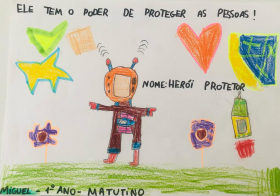 ELE TEM O PODER DE PROTEGER AS PESSOAS!
NOME: HERÓI PROTETOR
MIGUEL - 1º ANO - MATUTINO